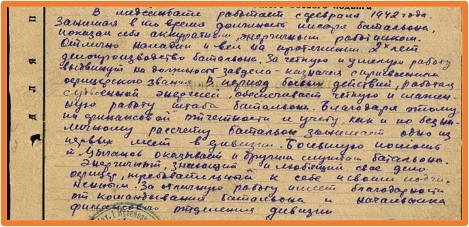 В медсанбате работает с февраля 1942 года.
Занимая в то время должность писаря батальона,
показал себя аккуратным энергичным работником.
Отлично наладил и вел на протяжении 2х лет
делопроизводство батальона. За четкую и умелую работу
выдвинут на должность завдела - казначея с присвоением
офицерского звания. В период боевых действий, работая
с удвоенной энергией обеспечивает четкую и слажен-
ную работу штаба батальона. Благодаря этому
по финансовой отчетности и учету, как и по безна-
личному расчету батальон занимает одно из
первых мест в дивизии. Большую помощь
т. Цыганов оказывает и другим службам батальона.
Энергичный знающий и любящий свое дело
офицер, требовательный к себе и своим подчи-
ненным. За отличную работу имеет благодарности
от командования батальона и начальника
финансового отделения дивизии